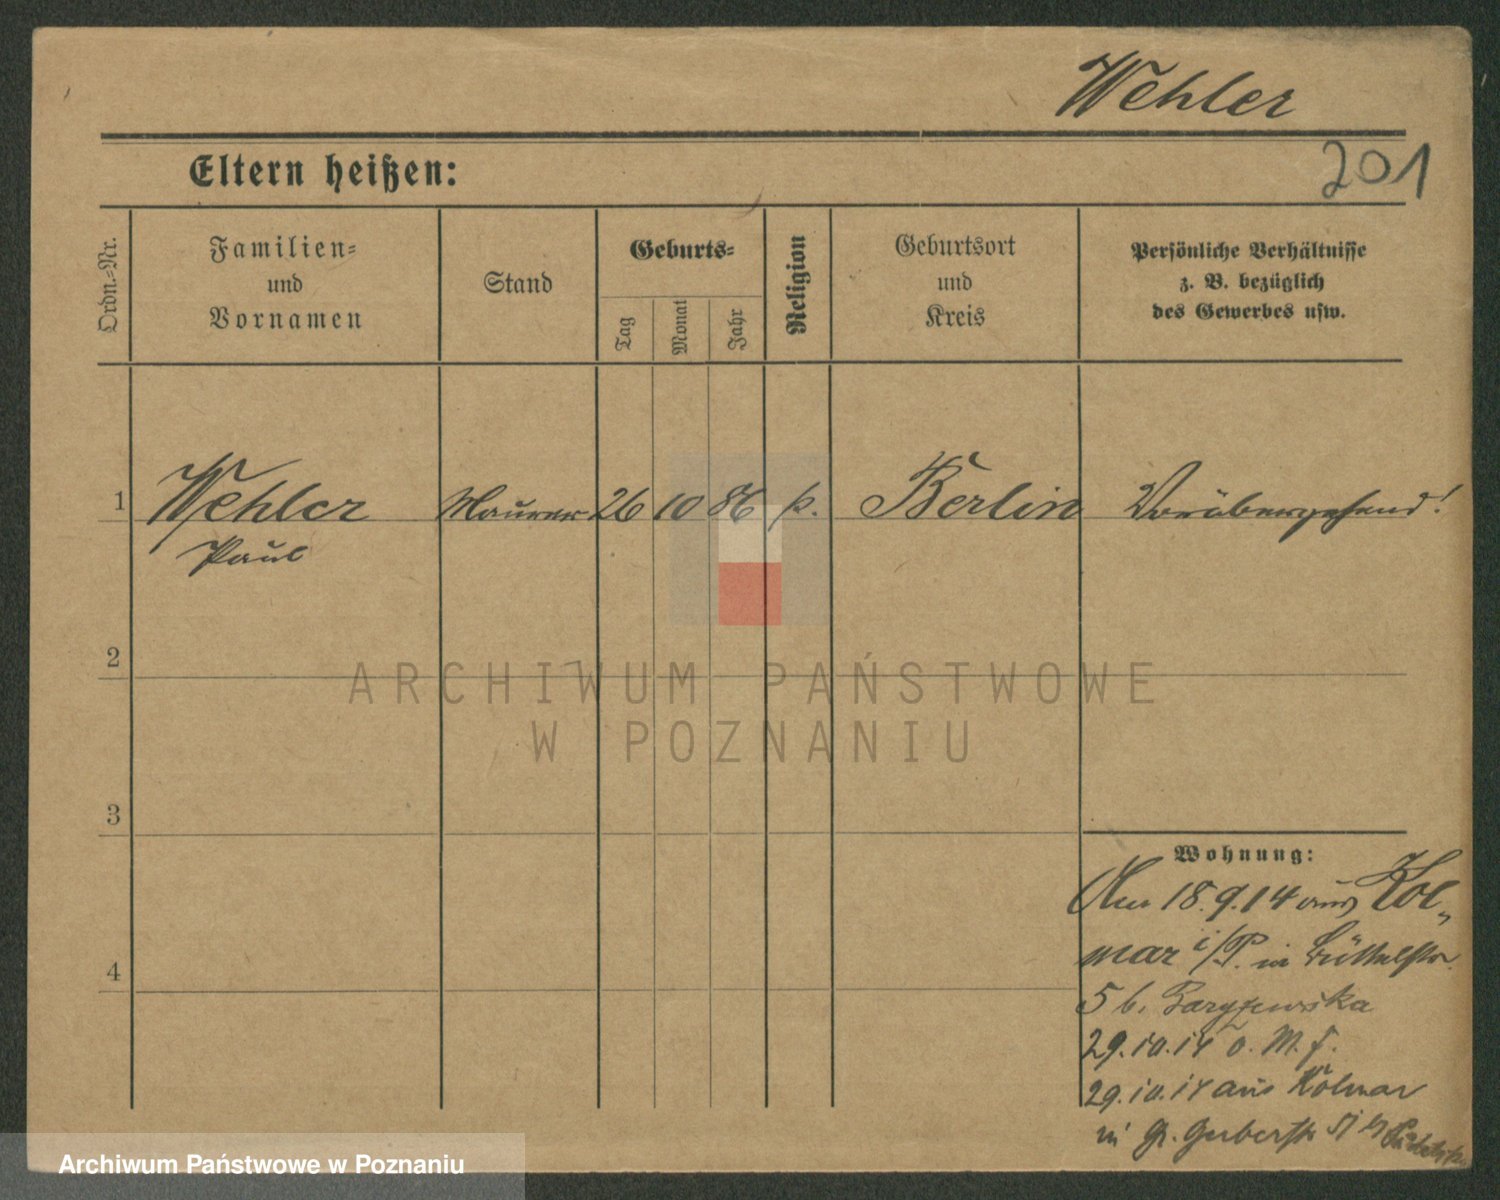 Wehler
201
Eltern heißen:
Ordn.-Nr.
Familien-
und
Vornamen
Stand
Geburts-
Tag
Monat
Jahr
Religion
Geburtsort
und
Kreis
Persönliche Verhältnisse
z. B. bezüglich
des Gewerbes usw.
1 Wehler Maurer 26 10 86 k. Berlin Vorübergehend!
Paul
2
3
4
Wohnung:
18.9.14 aus Kol-
mar i/P. in
5 b.
29.10.14 o. M. f.
29.10.14 aus Kolmar
in Gr. Gerberstr.
ARCHIWUM PAŃSTWOWE
W POZNANIU
Archiwum Państwowe w Poznaniu